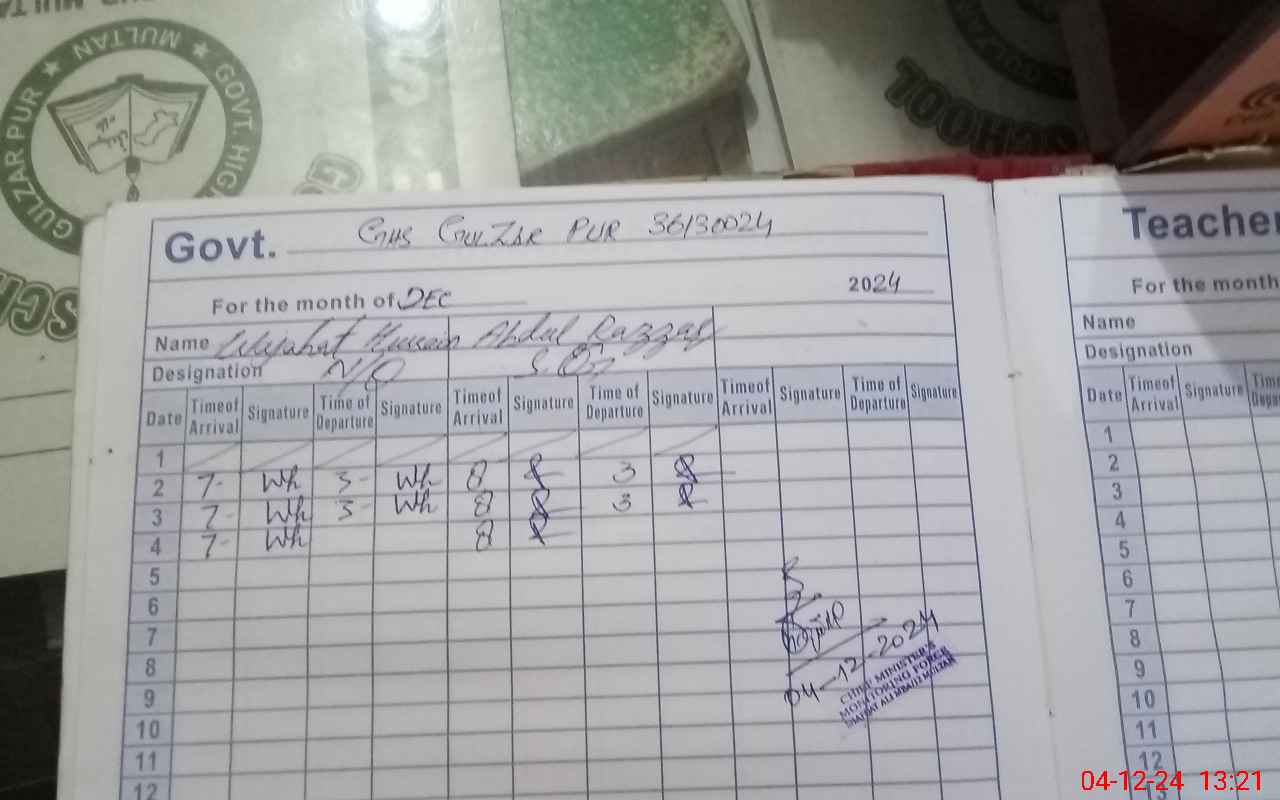 GOVT. HIGH
GULZAR PUR ★ MULTAN ★
SCHOOL
Govt. GHS GULZAR PUR 36130024
For the month of DEC 2024
Name Wajahat Hussain Abdul Razzaq
Designation N/Q
Date Timeof Arrival Signature Time of Departure Signature Timeof Arrival Signature Time of Departure Signature Timeof Arrival Signature Time of Departure Signature
1
2 7- Wh 3- Wh 8 3
3 7- Wh 3- Wh 8 3
4 7- Wh 8
5
6
7
8
9
10
11
12
04-12-2024
CHIEF MINISTER'S
MONITORING FORCE
Teacher
For the month
Name
Designation
Date Timeof Arrival Signature
1
2
3
4
5
6
7
8
9
10
11
12
13
04-12-24 13:21